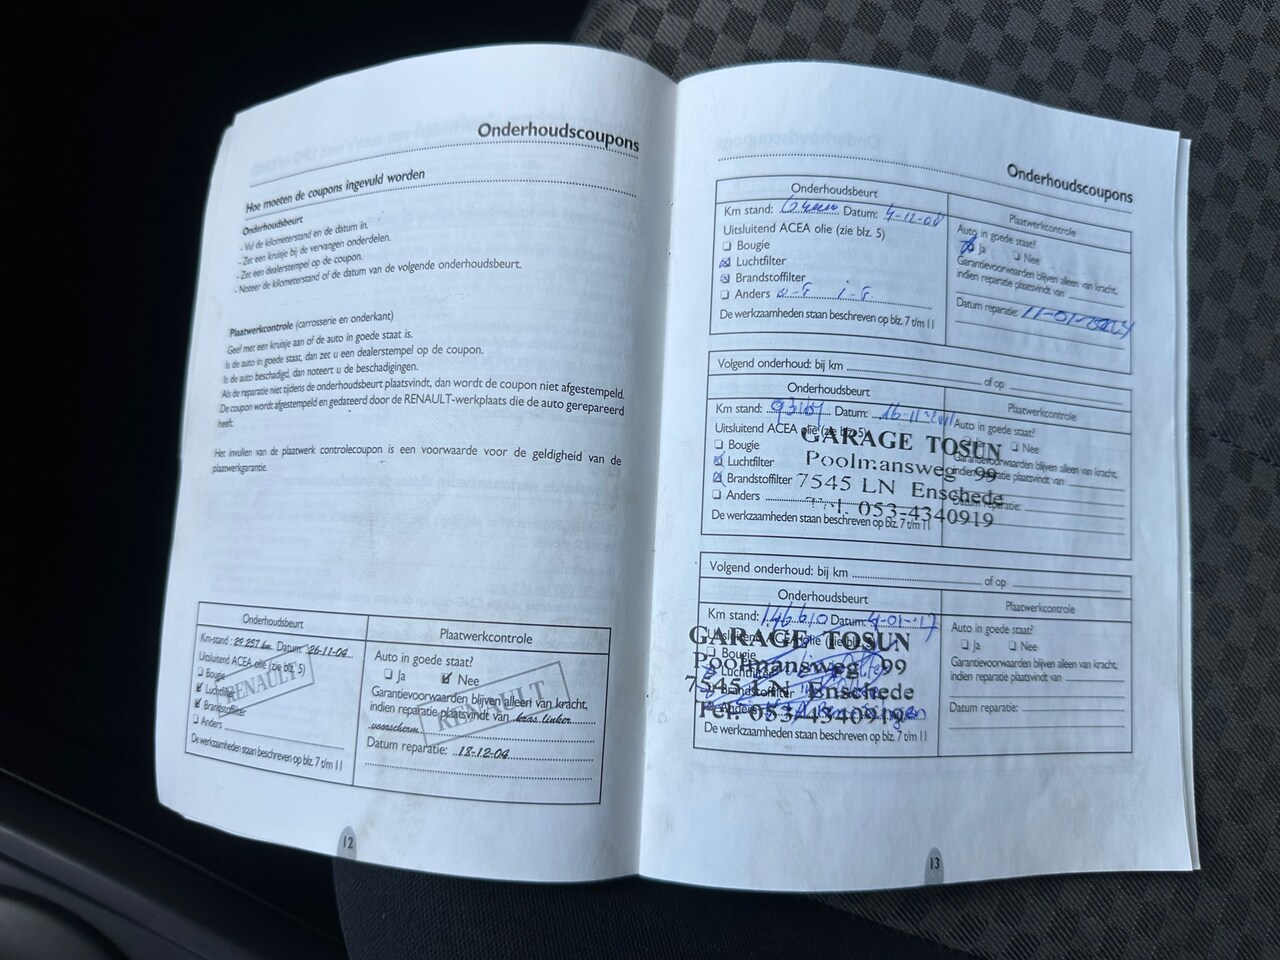 Onderhoudscoupons
Hoe moeten de coupons ingevuld worden
Onderhoudsbeurt
- Vul de kilometerstand en de datum in.
- Zet een kruisje bij de vervangen onderdelen.
- Zet een dealerstempel op de coupon.
- Noteer de kilometerstand of de datum van de volgende onderhoudsbeurt.
Plaatwerkcontrole (carrosserie en onderkant)
Geef met een kruisje aan of de auto in goede staat is.
Is de auto in goede staat, dan zet u een dealerstempel op de coupon.
Is de auto beschadigd, dan noteert u de beschadigingen.
Als de reparatie niet tijdens de onderhoudsbeurt plaatsvindt, dan wordt de coupon niet afgestempeld.
De coupon wordt afgestempeld en gedateerd door de RENAULT-werkplaats die de auto gerepareerd
heeft.
Het invullen van de plaatwerk controlecoupon is een voorwaarde voor de geldigheid van de
plaatwerkgarantie.
Onderhoudsbeurt
Km-stand : 29 257 km Datum: 26-11-04
Uitsluitend ACEA olie (zie blz. 5)
Bougie
Luchtfilter
Brandstoffilter
Anders
De werkzaamheden staan beschreven op blz. 7 t/m 11
RENAULT
Plaatwerkcontrole
Auto in goede staat?
Ja Nee
Garantievoorwaarden blijven alleen van kracht,
indien reparatie plaatsvindt van kras linker
voorscherm
Datum reparatie: 18-12-04
RENAULT
12
Onderhoudscoupons
Onderhoudsbeurt
Km stand: Datum: 4-11-08
Uitsluitend ACEA olie (zie blz. 5)
Bougie
Luchtfilter
Brandstoffilter
Anders
De werkzaamheden staan beschreven op blz. 7 t/m 11
Plaatwerkcontrole
Auto in goede staat?
Ja Nee
Garantievoorwaarden blijven alleen van kracht,
indien reparatie plaatsvindt van
Datum reparatie: 11-01-
Volgend onderhoud: bij km of op
Onderhoudsbeurt
Km stand: Datum: 16-11-2011
Uitsluitend ACEA olie (zie blz. 5)
Bougie
Luchtfilter
Brandstoffilter
Anders
De werkzaamheden staan beschreven op blz. 7 t/m 11
Plaatwerkcontrole
Auto in goede staat?
Nee
Garantievoorwaarden blijven alleen van kracht,
indien reparatie plaatsvindt van
Datum reparatie:
GARAGE TOSUN
Poolmansweg 99
7545 LN Enschede
Tel. 053-4340919
Volgend onderhoud: bij km of op
Onderhoudsbeurt
Km stand: 146610 Datum: 4-01-'17
Uitsluitend ACEA olie (zie blz. 5)
Bougie
Luchtfilter
Brandstoffilter
Anders
De werkzaamheden staan beschreven op blz. 7 t/m 11
Plaatwerkcontrole
Auto in goede staat?
Ja Nee
Garantievoorwaarden blijven alleen van kracht,
indien reparatie plaatsvindt van
Datum reparatie:
GARAGE TOSUN
Poolmansweg 99
7545 LN Enschede
Tel. 053-4340919
13